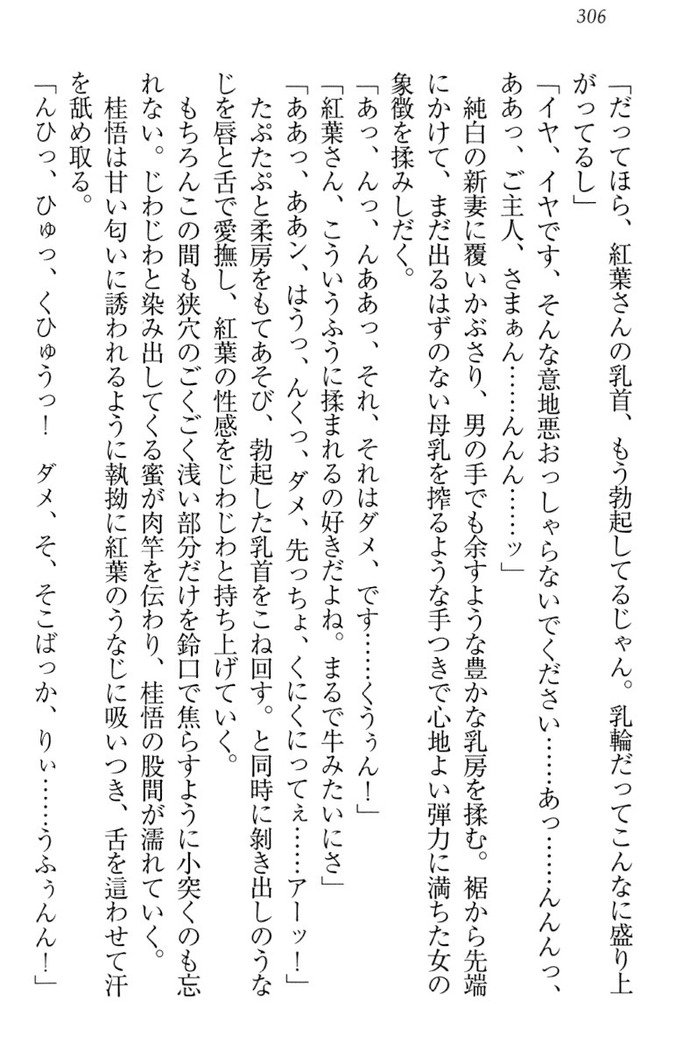 306
「だってほら、紅葉さんの乳首、もう勃起してるじゃん。乳輪だってこんなに盛り上
がってるし」
「イヤ、イヤです、そんな意地悪おっしゃらないでください……あっ……んんんっ、
ああっ、ご主人、さまぁん……んんん……ッ」
　純白の新妻に覆いかぶさり、男の手でも余すような豊かな乳房を揉む。裾から先端
にかけて、まだ出るはずのない母乳を搾るような手つきで心地よい弾力に満ちた女の
象徴を揉みしだく。
「あっ、んっ、んああっ、それ、それはダメ、です……くうぅん！」
「紅葉さん、こういうふうに揉まれるの好きだよね。まるで牛みたいにさ」
「ああっ、ああン、はうっ、んくっ、ダメ、先っちょ、くにくにってぇ……アーッ！」
　たぷたぷと柔房をもてあそび、勃起した乳首をこね回す。と同時に剝き出しのうな
じを唇と舌で愛撫し、紅葉の性感をじわじわと持ち上げていく。
　もちろんこの間も狭穴のごくごく浅い部分だけを鈴口で焦らすように小突くのも忘
れない。じわじわと染み出してくる蜜が肉竿を伝わり、桂悟の股間が濡れていく。
　桂悟は甘い匂いに誘われるように執拗に紅葉のうなじに吸いつき、舌を這わせて汗
を舐め取る。
「んひっ、ひゅっ、くひゅうっ！　ダメ、そ、そこばっか、りぃ……うふぅんん！」